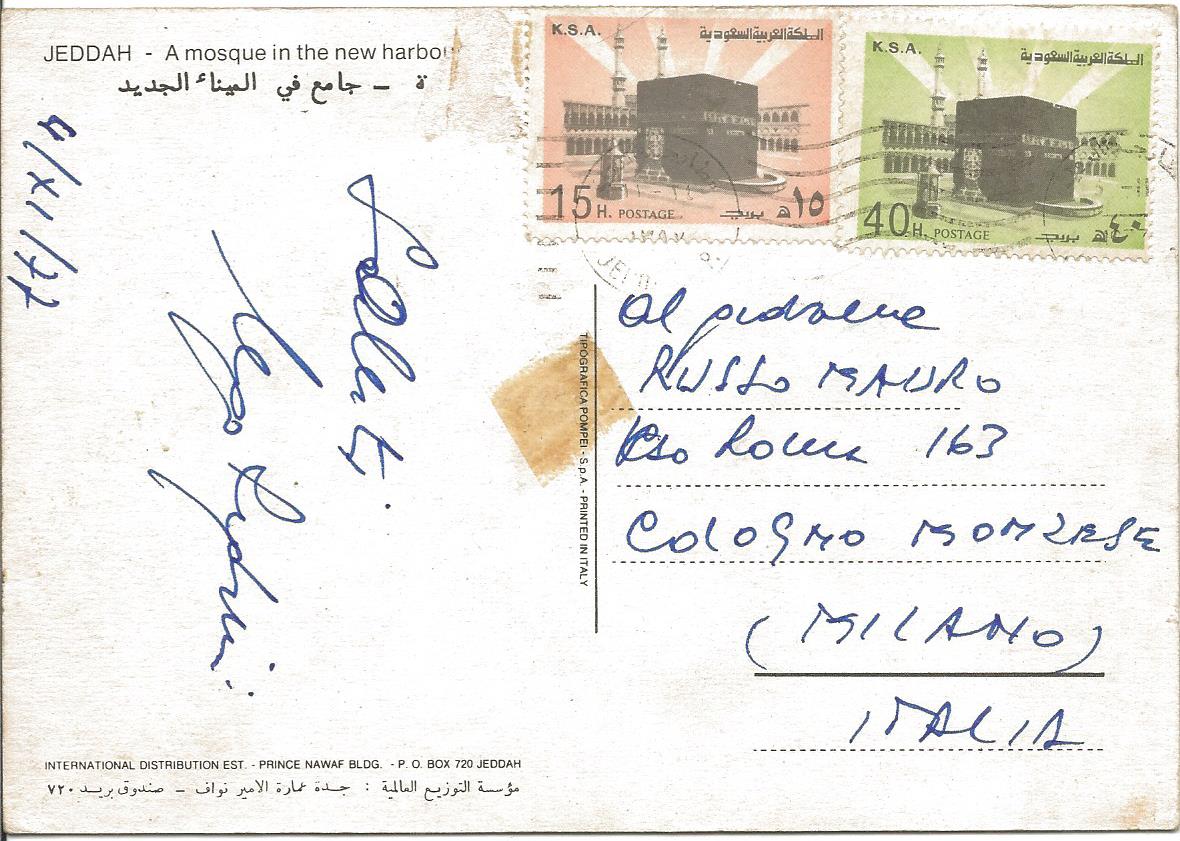 JEDDAH - A mosque in the new harbou
ة – جامع في الميناء الجديد
4/XI/77
Saluti
K.S.A.
المملكة العربية السعودية
15 H. POSTAGE
بريد ١٥ ھ
K.S.A.
المملكة العربية السعودية
40 H. POSTAGE
بريد ٤٠ ھ
TIPOGRAFICA POMPEI - S.p.A. - PRINTED IN ITALY
Al
RUSSO MAURO
C.so Roma 163
COLOGNO MONZESE
(MILANO)
ITALIA
INTERNATIONAL DISTRIBUTION EST. - PRINCE NAWAF BLDG. - P. O. BOX 720 JEDDAH
مؤسسة التوزيع العالمية : جدة عمارة الامير نواف – صندوق بريد ٧٢٠